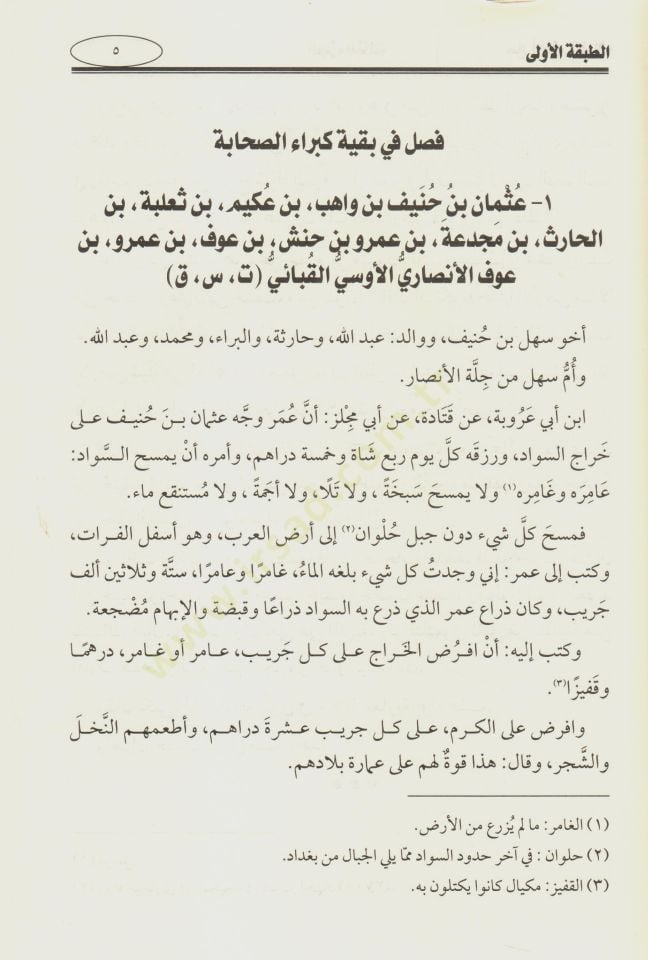 الطبقة الأولى
٥
فصل في بقية كبراء الصحابة
١- عُثْمان بنُ حُنَيف بن واهب، بن عُكيم، بن ثعلبة، بن
الحارث، بن مَجدعة، بن عمرو بن حنش، بن عوف، بن عمرو، بن
عوف الأنصاريُّ الأوسيُّ القُبائيُّ (ت، س، ق)
أخو سهل بن حُنيف، ووالد: عبد الله، وحارثة، والبراء، ومحمد، وعبد الله.
وأُمُّ سهل من جِلَّة الأنصار.
ابن أبي عَروبة، عن قَتادة، عن أبي مِجْلز: أنَّ عُمَر وجَّه عثمان بنَ حُنيف على
خَراج السواد، ورزقه كلَّ يوم ربع شَاة وخمسة دراهم، وأمره أنْ يمسح السَّواد:
عَامِرَه وغَامِره(١) ولا يمسحَ سَبخَةً، ولا تَلًا، ولا أجَمةً، ولا مُستنقع ماء.
فمسحَ كلَّ شيء دون جبل حُلْوان(٢) إلى أرض العرب، وهو أسفل الفرات،
وكتب إلى عمر: إني وجدتُ كل شيء بلغه الماءُ، غامرًا وعامرًا، ستَّة وثلاثين ألف
جَريب، وكان ذراع عمر الذي ذرع به السواد ذراعًا وقبضة والإبهام مُضْجعة.
وكتب إليه: أنْ افرُض الخَراج على كل جَريب، عامر أو غامر، درهمًا
وقَفيزًا(٣).
وافرض على الكرم، على كل جريب عشرةَ دراهم، وأطعمهم النَّخلَ
والشَّجر، وقال: هذا قوةٌ لهم على عمارة بلادهم.
(١) الغامر: ما لم يُزرع من الأرض.
(٢) حلوان: في آخر حدود السواد ممّا يلي الجبال من بغداد.
(٣) القفيز: مكيال كانوا يكتلون به.